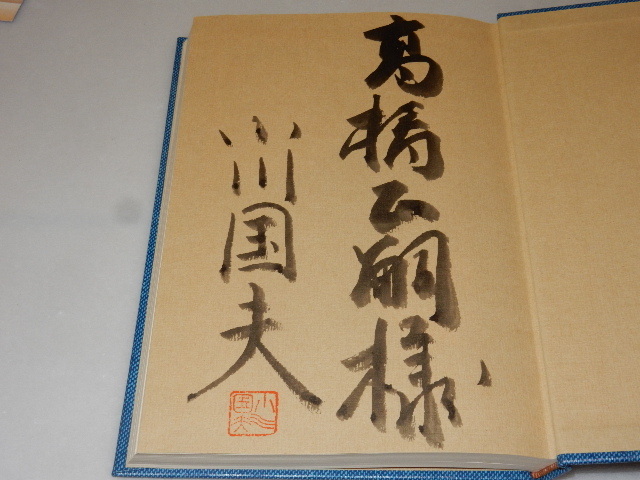 高橋公嗣様
小川国夫
小川国夫